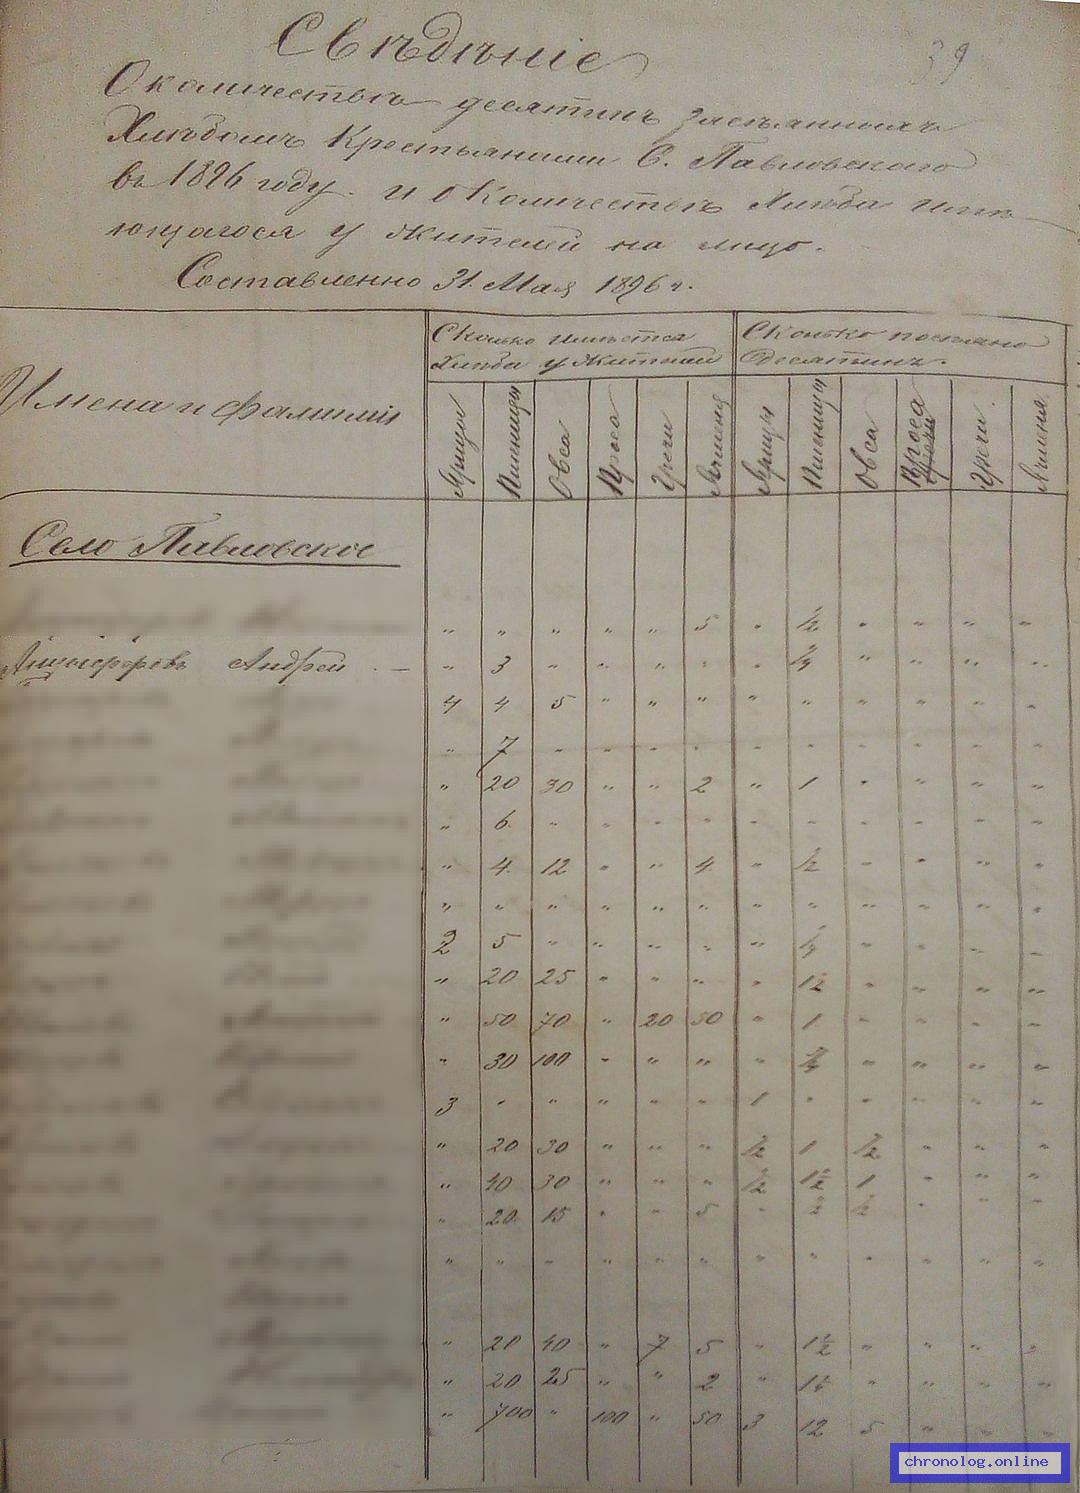 39
Свѣдѣніе
О количествѣ десятинъ засѣянныхъ
Хлѣбомъ Крестьянами С. Павловскаго
въ 1896 году и о Количествѣ Хлѣба имѣ
ющагося у жителей на лицо.
Составленно 31. Мая 1896 г.
Имена и фамиліи
Сколько имѣется
Хлѣба у Жителей
Сколько посѣяно
Десятинъ.
Ярицы Пшеницы Овса Проса Гречи Ячменя Ярицы Пшеницы Овса Проса Гречи Ячменя
Село Павловское
" " " " " 5 " ½ " " " "
Андрей — " 3 " " " " " " " " "
4 4 5 " " " " " " " " "
" 7 " " " " " " " " " "
" 20 30 " " 2 " 1 " " " "
" 6. " " " " " " " " " "
" 4. 12 " " 4. " ½ " " " "
" " " " " " " " " " " "
2 5 " " " " " " " " "
" 20 25 " " " " 1½ " " " "
" 50 70 " 20 30 " 1 " " " "
" 30 100 " " " " ¾ " " " "
3 " " " " " 1 " " " " "
" 20 30 " " " ½ 1 ½ " " "
" 40 30 " " " ½ 1½ 1 " " "
" 20 15 " " 5 " ½ " " "
" " " " " " " " " " " "
" 20 40 " 7 5 " 1½ " " " "
" 20 25 " " 2 " " " " "
" 700 " 100 " 50 3 12 5 " " "
chronolog.online